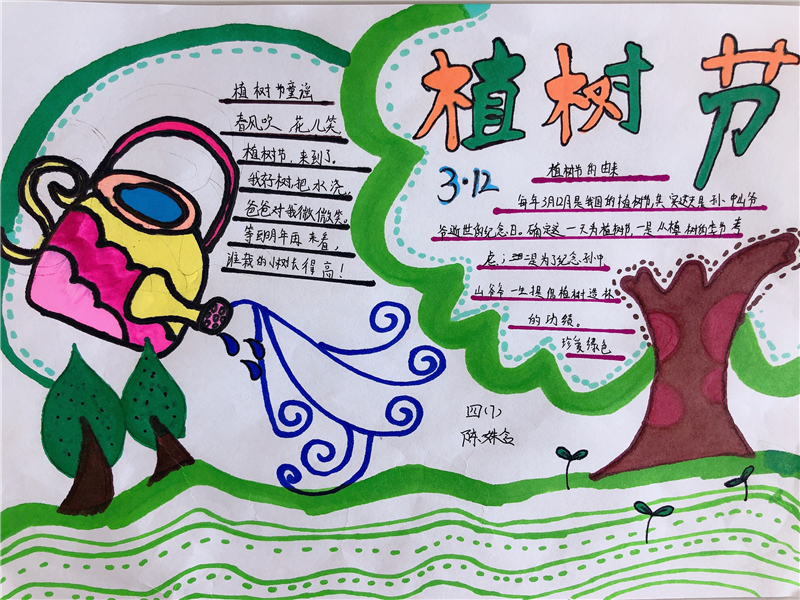 植树节
3·12
植树节童谣
春风吹 花儿笑
植树节,来到了。
我给树把水浇,
爸爸对我微微笑。
等到明年再来看,
谁栽的小树长得高!
植树节的由来
每年3月12日是我国的植树节,其实这天是孙中山爷
爷逝世的纪念日。确定这一天为植树节,一是从植树的季节考
虑;二是为了纪念孙中
山爷爷一生提倡植树造林
的功绩。
珍爱绿色
四(1)
陈姝